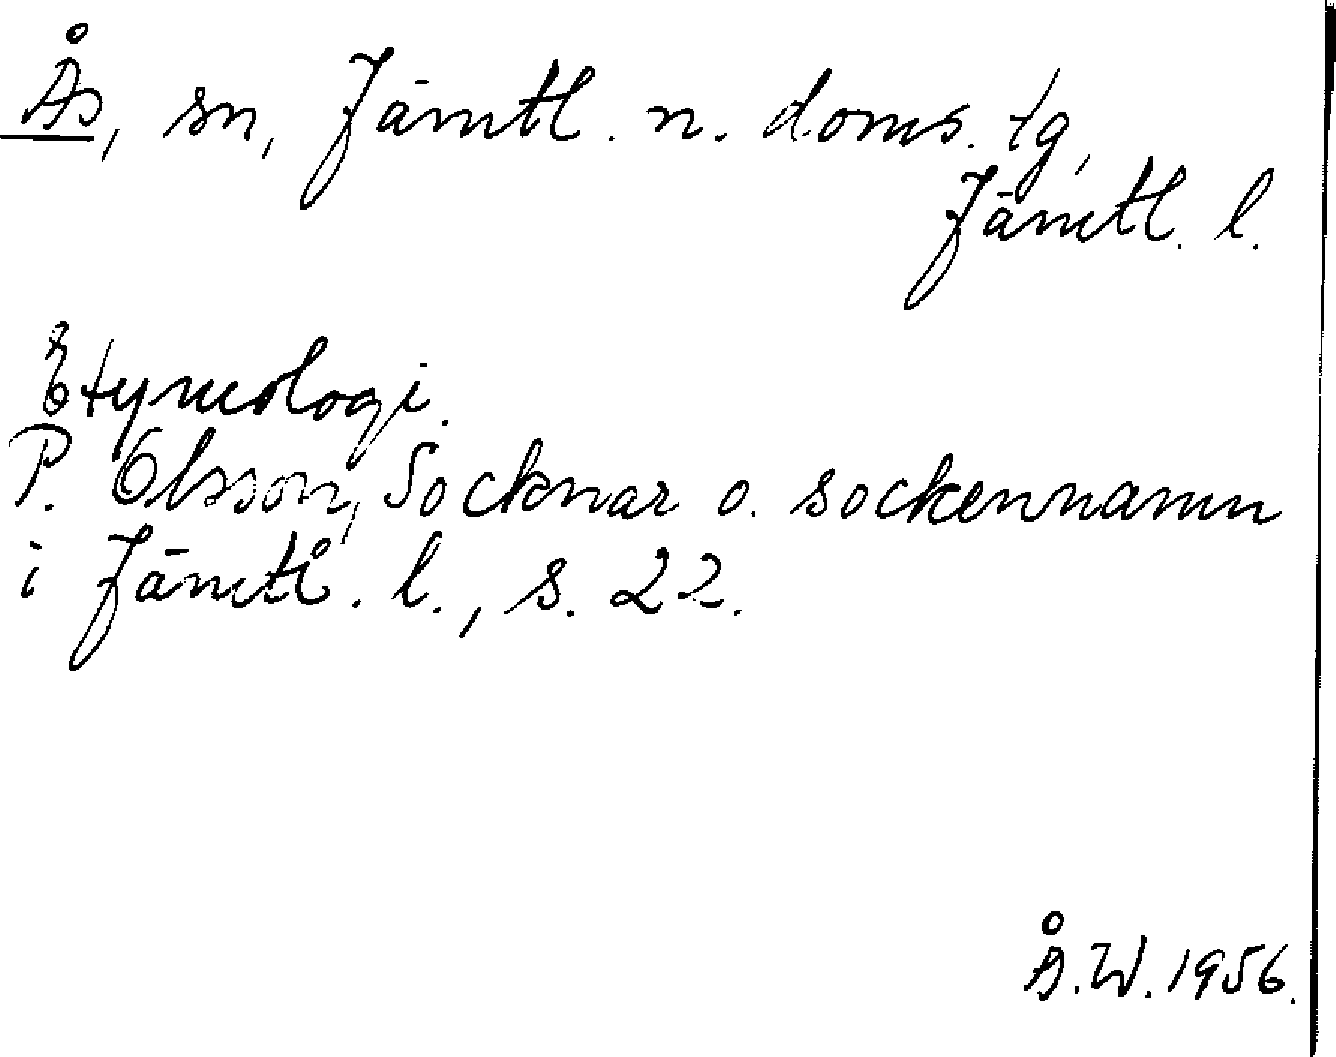 Ås, sn, Jämtl. n. doms. tg,
Jämtl. l.
Etymologi.
P. Olsson, Socknar o. sockennamn
i Jämtl. l., s. 22.
Å.W. 1956.